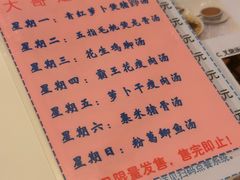 大哥
星期一：青红萝卜煲猪𦟌汤
星期二：五指毛桃煲龙骨汤
星期三：花生鸡脚汤
星期四：霸王花瘦肉汤
星期五：萝卜干瘦肉汤
星期六：粟米猪骨汤
星期日：粉葛鲫鱼汤
限量发售，售完即止！
元
元